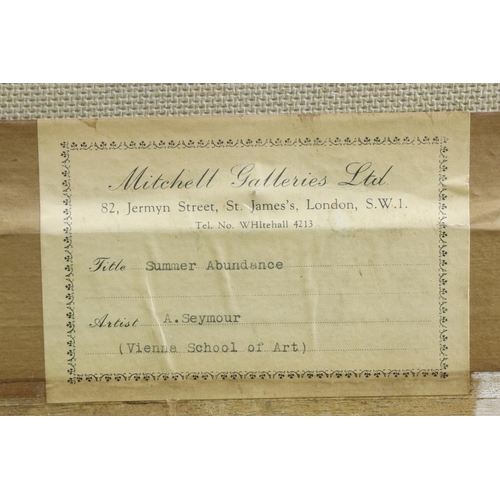 Mitchell Galleries Ltd
82, Jermyn Street, St. James's, London, S.W.1.
Tel. No. WHItehall 4213
Title Summer Abundance
Artist A.Seymour
(Vienna School of Art)